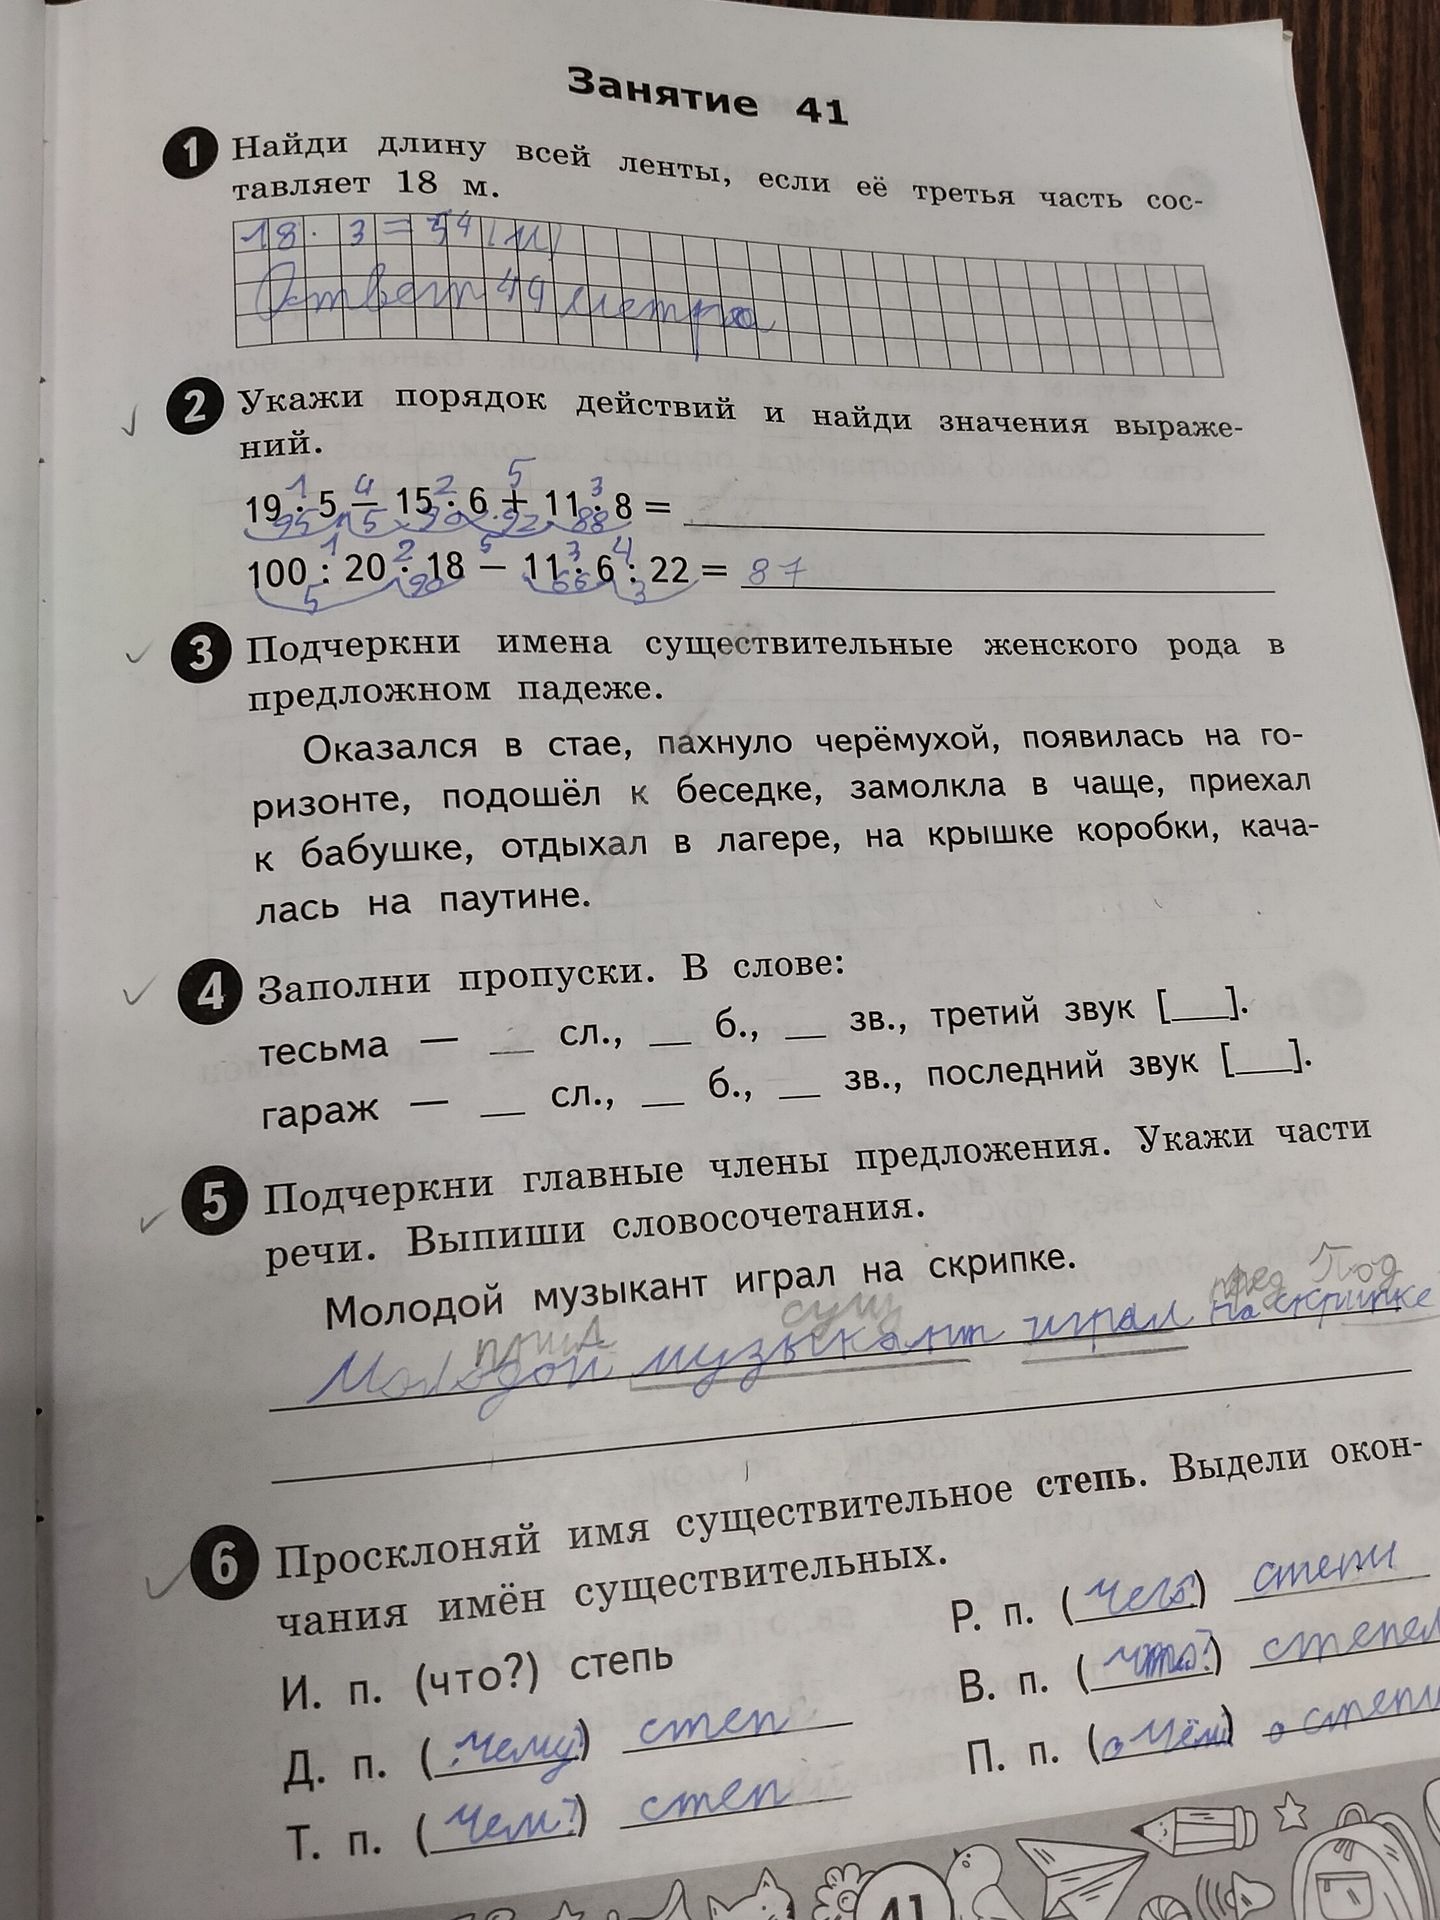 Занятие 41
1 Найди длину всей ленты, если её третья часть сос-
тавляет 18 м.
18 · 3 = 54 (м)
Ответ 49 метра
2 Укажи порядок действий и найди значения выраже-
ний.
1 4 2 5 3
19 · 5 − 15 · 6 + 11 · 8 =
95 5 90 92 88
1 2 5 3 4
100 : 20 · 18 − 11 · 6 : 22 = 87
5 90 66 3
3 Подчеркни имена существительные женского рода в
предложном падеже.
Оказался в стае, пахнуло черёмухой, появилась на го-
ризонте, подошёл к беседке, замолкла в чаще, приехал
к бабушке, отдыхал в лагере, на крышке коробки, кача-
лась на паутине.
4 Заполни пропуски. В слове:
тесьма — __ сл., __ б., __ зв., третий звук [___].
гараж — __ сл., __ б., __ зв., последний звук [___].
5 Подчеркни главные члены предложения. Укажи части
речи. Выпиши словосочетания.
Молодой музыкант играл на скрипке.
сущ пред
Молодой музыкант играл на скрипке
6 Просклоняй имя существительное степь. Выдели окон-
чания имён существительных.
И. п. (что?) степь
Д. п. (чему?) степ
Т. п. (чем?) степ
Р. п. (чего?) степи
В. п. (что?)
П. п. (о чём) о степи
41